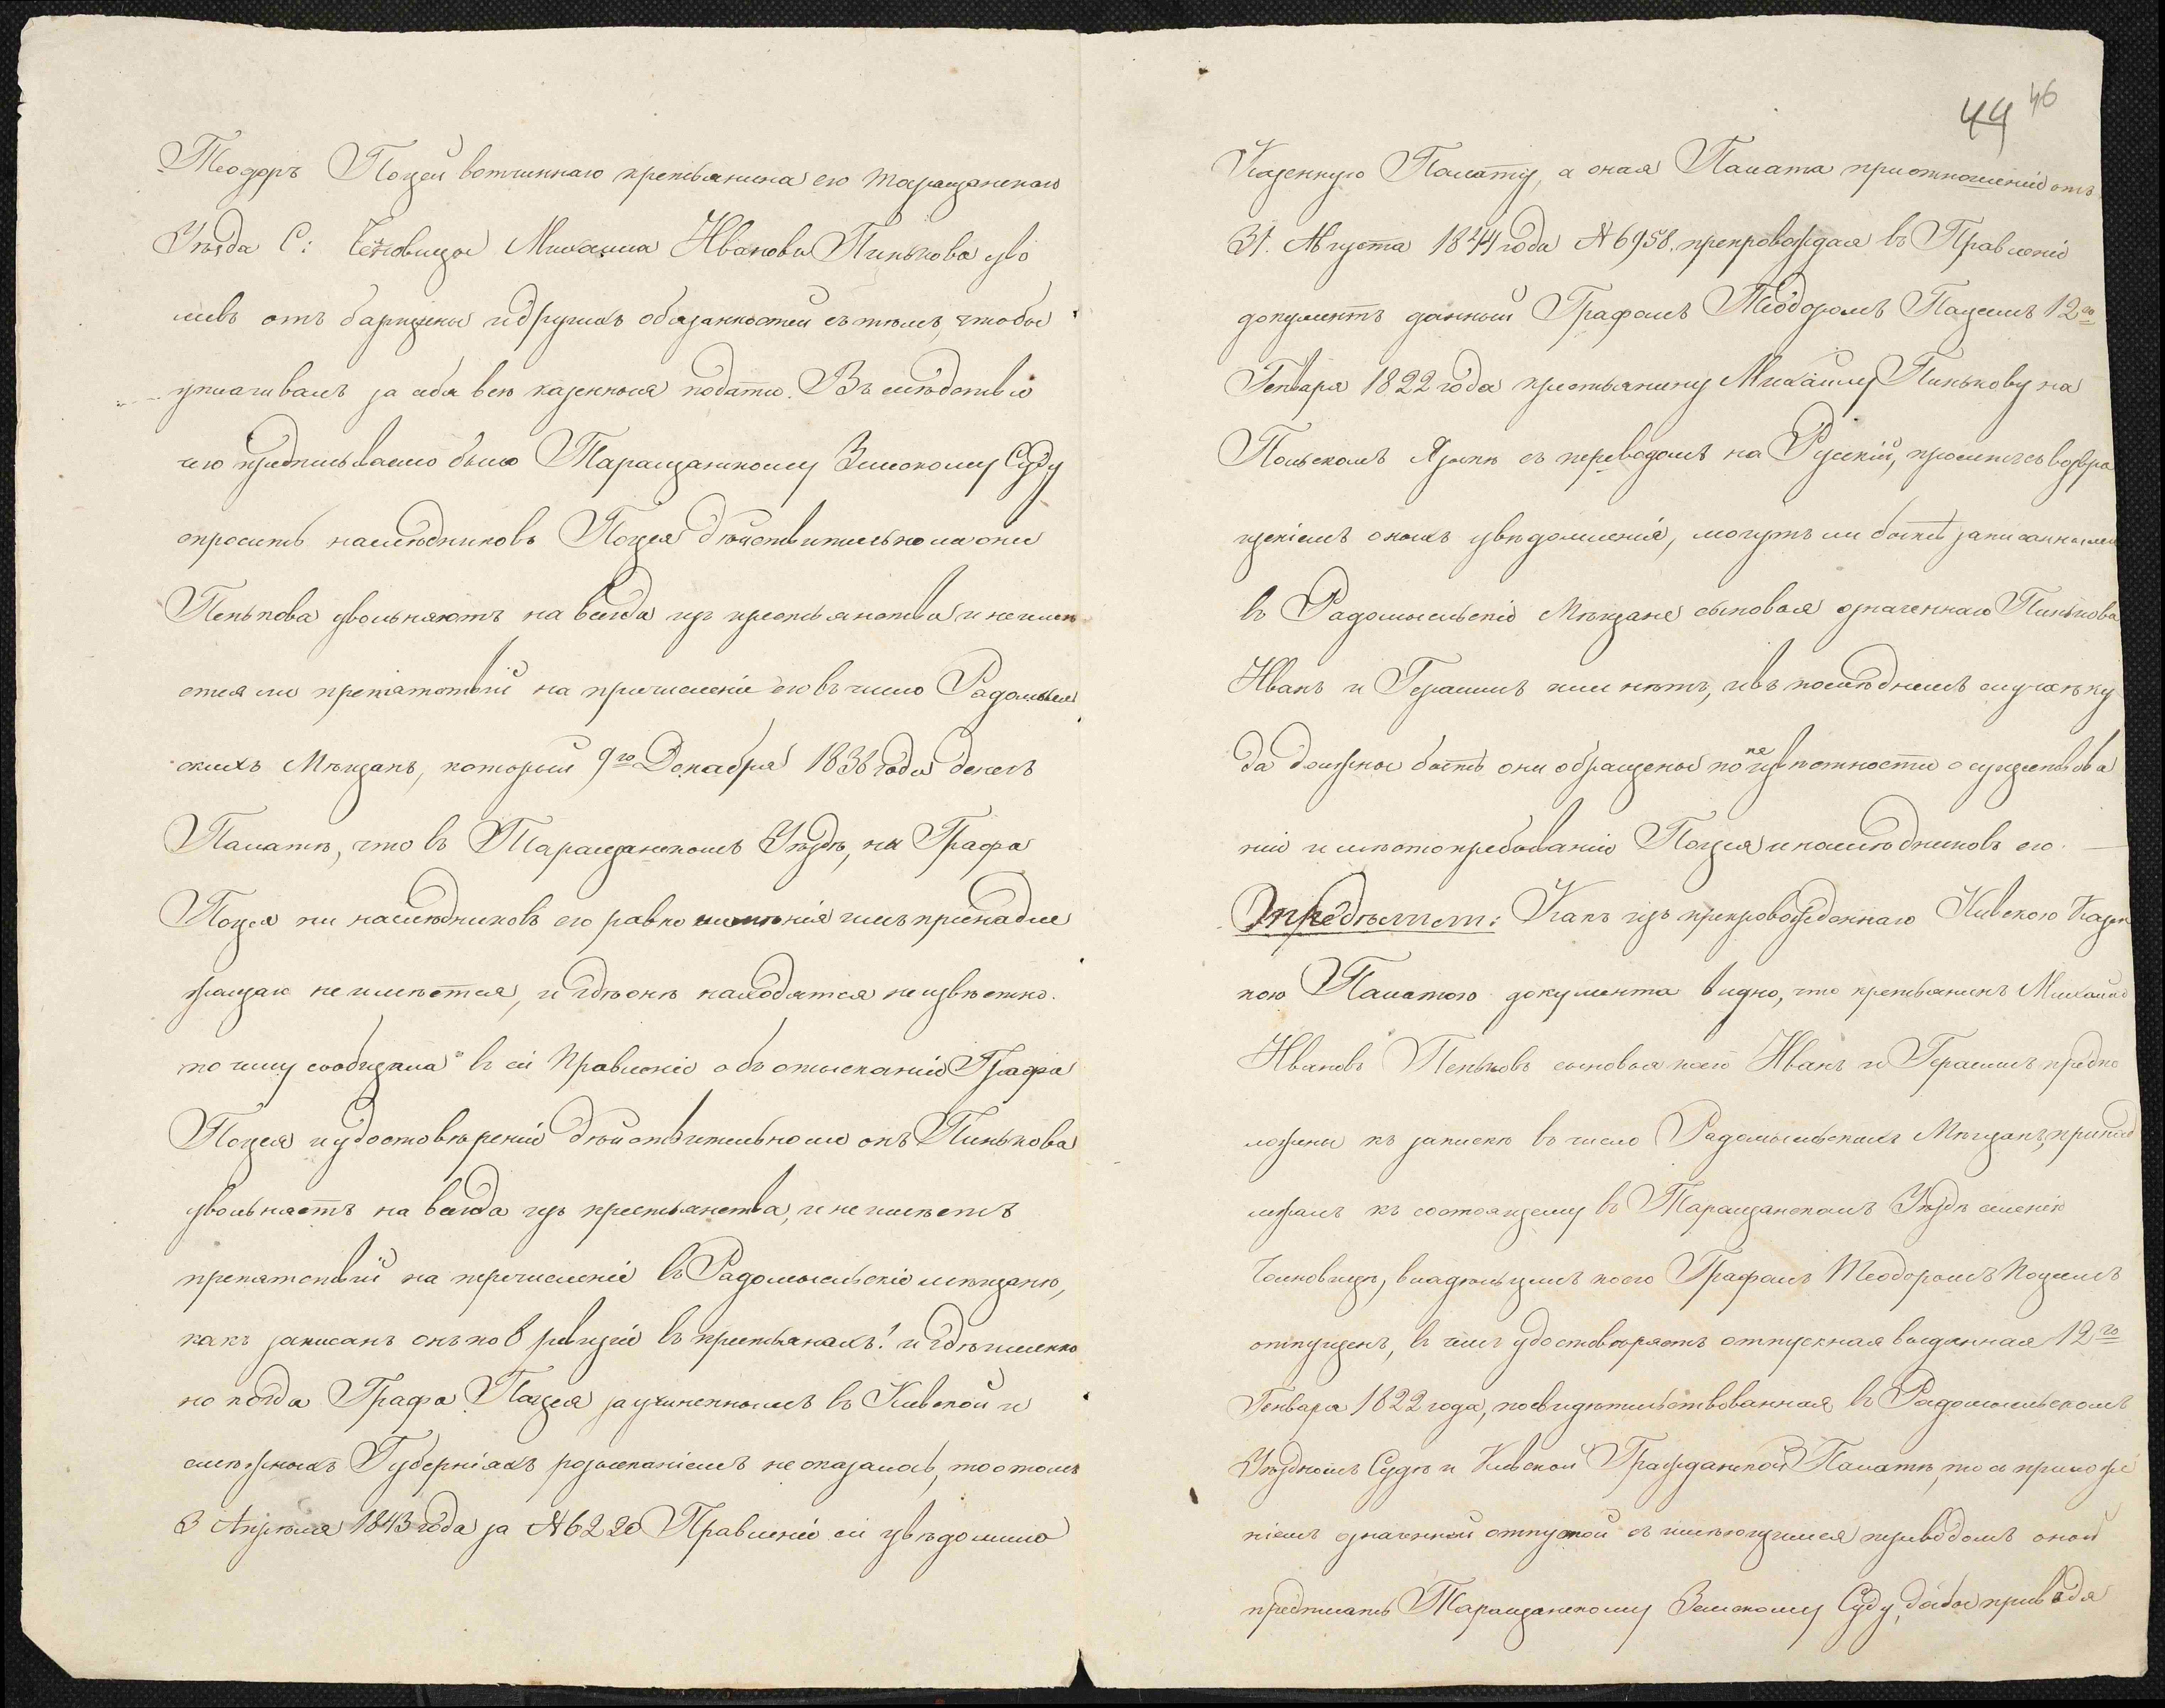 Теодоръ Поцей вотчиннаго крестьянина его Таращанскаго
Уѣзда С: Михаила Иванова Пинькова уво
лилъ отъ барщины и другихъ обязанностей съ тѣмъ, чтобы
уплачивалъ за себя всѣ казенныя подати. Въ слѣдствіе
чего предписываемо было Таращанскому Земскому Суду
спросить наслѣдниковъ Поцея дѣйствительно ли они
Пенькова увольняютъ на всегда изъ крестьянства и неимѣ
ется ли препятствій на причисленіе его въ число Радомысль
скихъ Мѣщанъ, который 9го Декабря 1838 года донесъ
Палатѣ, что въ Таращанскомъ Уѣздѣ, ни Графа
Поцея ни наслѣдниковъ его равно имѣнія имъ принадле
жащаго неимѣется, и гдѣ онѣ находятся неизвѣстно.
по чему сообщала въ сіе Правленіе объ отысканіи Графа
Поцея и удостовѣреніи дѣйствительно ли онъ Пинькова
увольняетъ на всегда изъ крестьянства, и не имѣетъ
препятствій на перечисленіе въ Радомысльскіе мѣщане,
какъ записанъ онъ по 8 ревизіи въ крестьянахъ! и гдѣ именно
но когда Графа Поцея за учиненнымъ въ Кіевской и
смѣжныхъ Губерніяхъ розысканіемъ не оказалось, то о томъ
3 Апрѣля 1843 года за №6220 Правленіе сіе увѣдомило
44 46
Казенную Палату, а оная Палата при отношеніи отъ
31. Августа 1844 года №6958. препровождая въ Правленіе
документъ данный Графомъ Теодоромъ Поцеемъ 12го
Генваря 1822 года крестьянину Михайлу Пинькову на
Польскомъ Языкѣ съ переводомъ на Русскій, проситъ съ возвра
щеніемъ оныхъ увѣдомленія, могутъ ли быть записанными
въ Радомысльскіе Мѣщане сыновья означеннаго Пинькова
Иванъ и Герасимъ или нѣтъ, и въ послѣднемъ случаѣ ку
да должны быть они обращены по неизвѣстности о существова
ніи и мѣстопребываніи Поцея и наслѣдниковъ его. —
Опредѣлили: Какъ изъ препровожденнаго Кіевскою Казен
ною Палатою документа видно, что крестьянинъ Михаилъ
Ивановъ Пеньковъ сыновья коего Иванъ и Герасимъ предпо
ложены къ запискѣ въ число Радомысльскихъ Мѣщанъ, принад
лежалъ къ состоящему въ Таращанскомъ Уѣздѣ селенію
владѣльцемъ коего Графомъ Теодоромъ Поцеемъ
отпущенъ, въ чемъ удостовѣряетъ отпускная выданная 12го
Генваря 1822 года, посвидѣтельствованная въ Радомысльскомъ
Уѣздномъ Судѣ и Кіевской Гражданской Палатѣ, то съ приложе
ніемъ означенной отпускной съ имѣющимся переводомъ оной
предписать Таращанскому Земскому Суду, дабы приведя